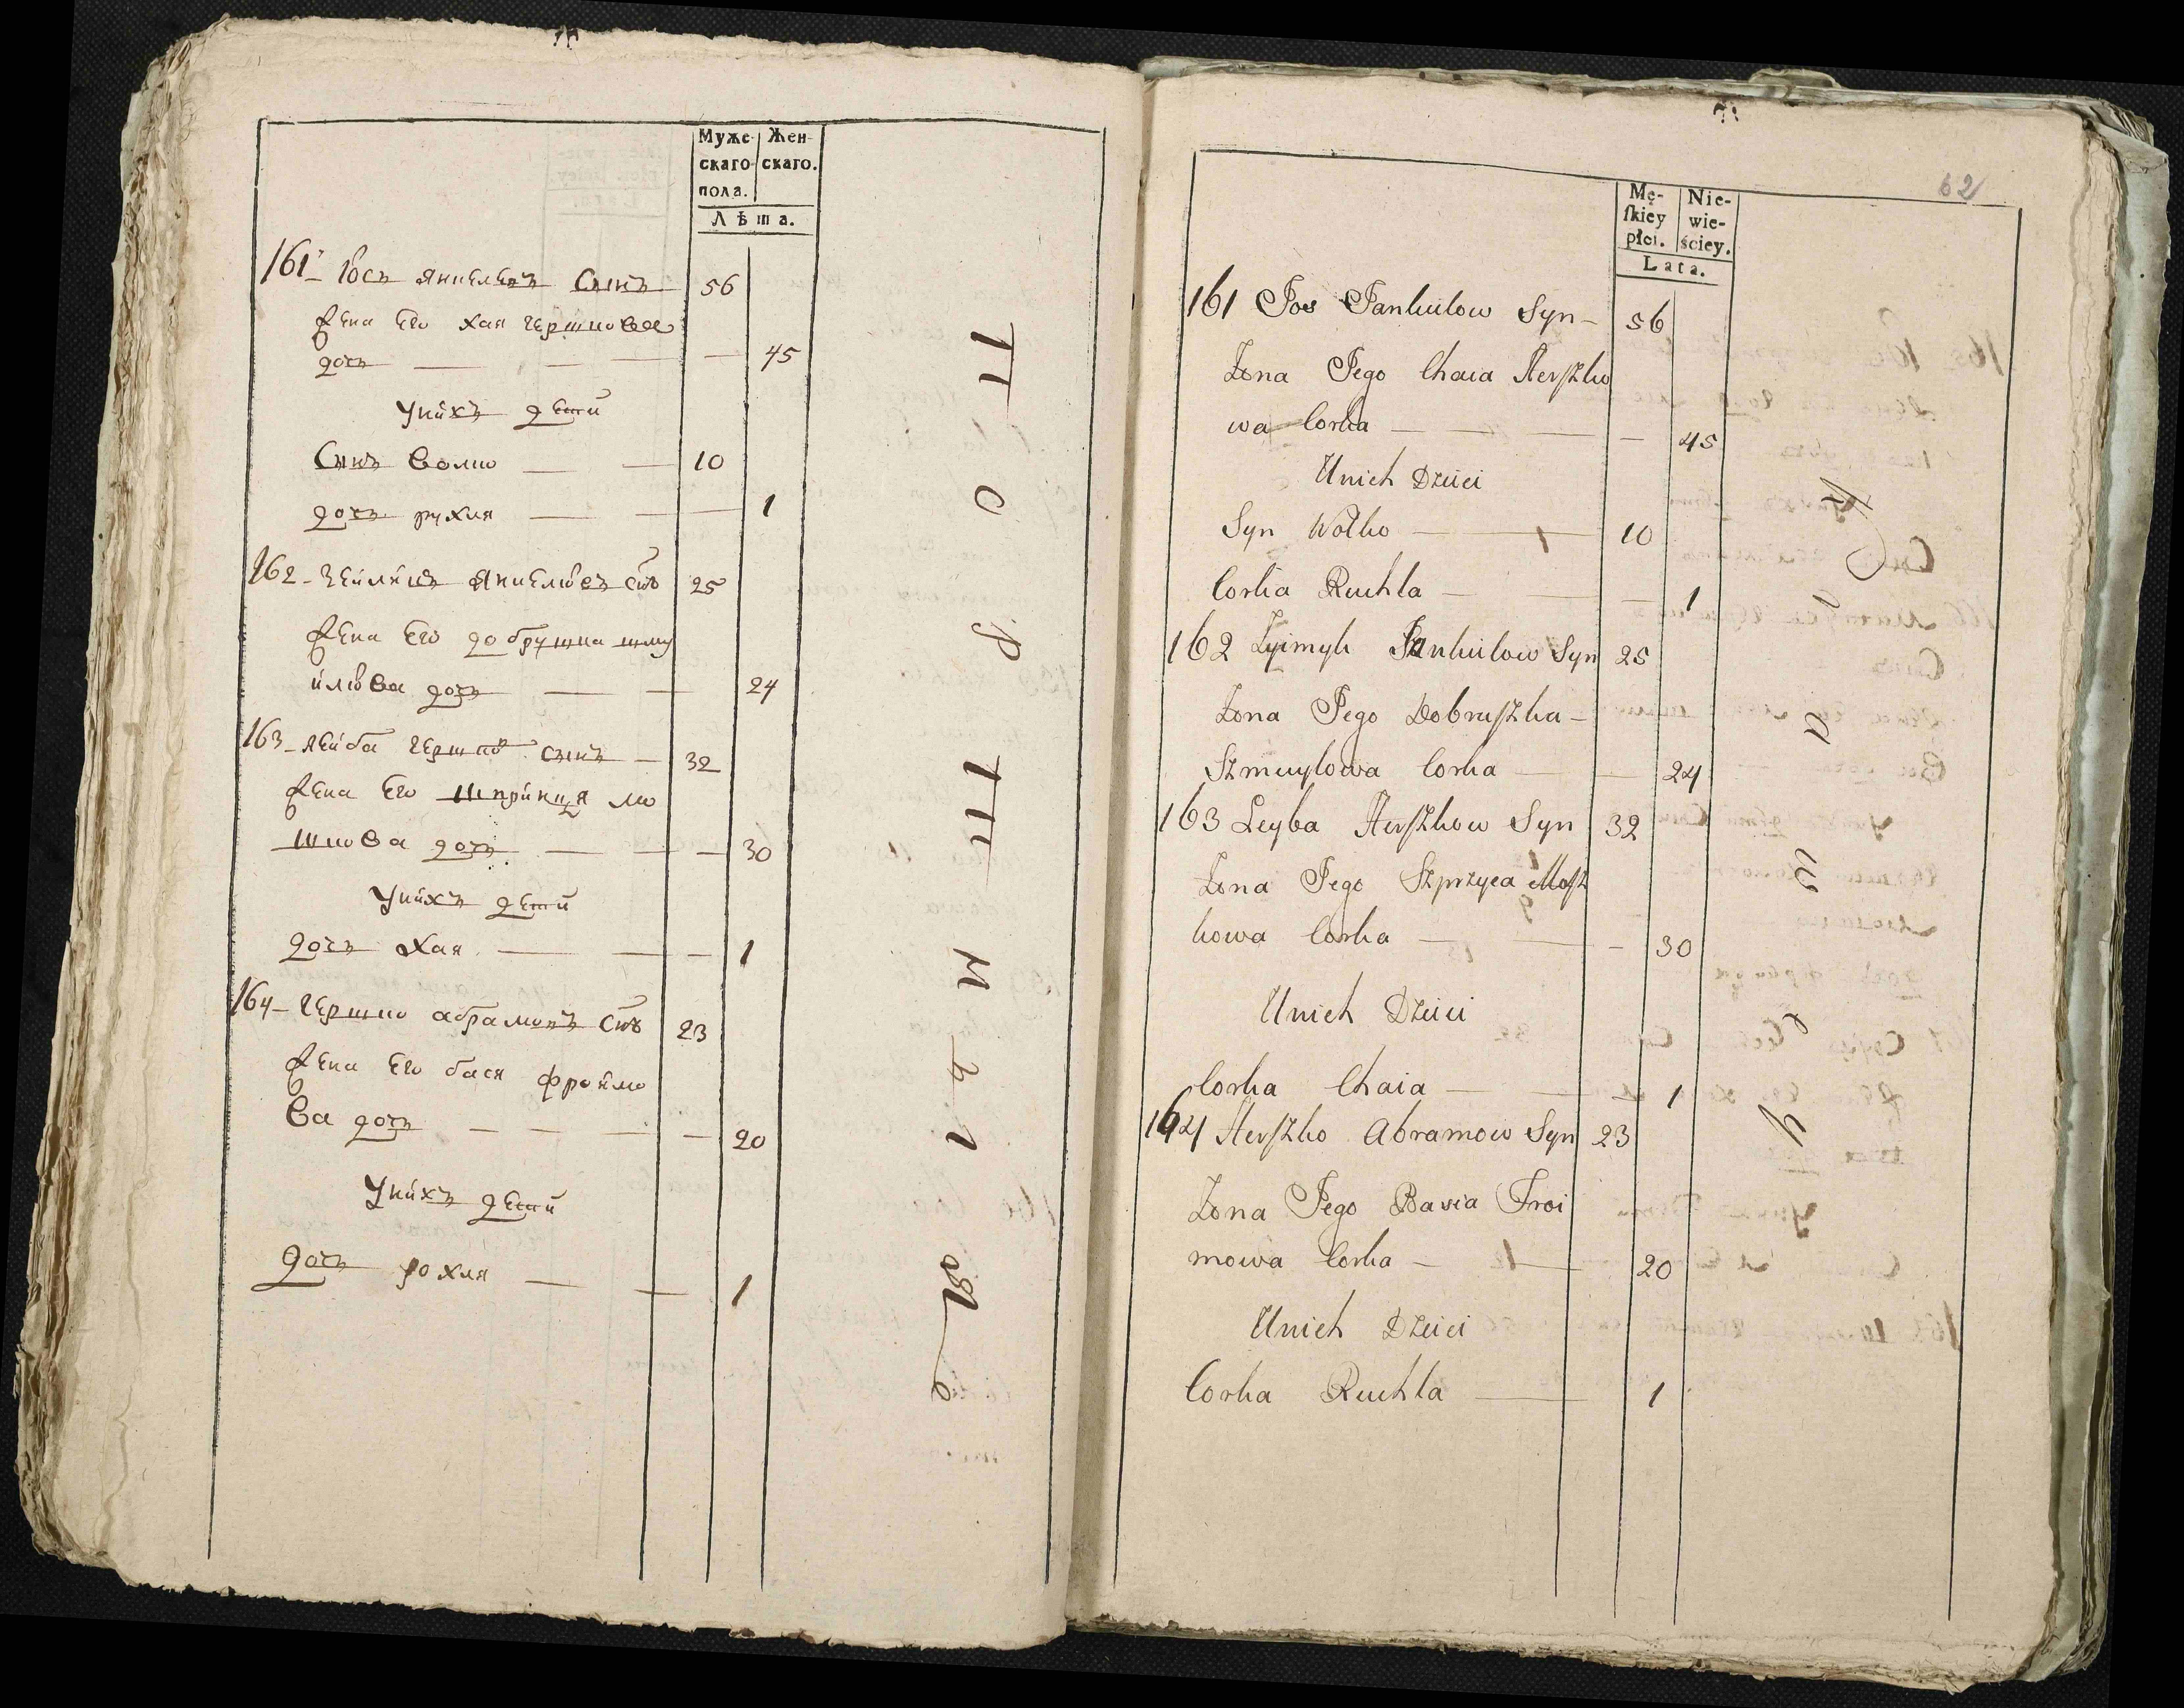 Муже-
скаго
пола.
Жен-
скаго.
Лѣта.
161 Іось Янкелевъ Сынъ 56
Жена Его Хая Гершкова
дочь — — — — 45
Унихъ дети
Сынъ Волко — — 10
дочь рухля — — — 1
162 Зеймикъ Янкелювъ Снъ 25
Жена Его добрушка шму
йлова дочь — — 24
163 Лейба Гершков сынъ — 32
Жена Его Шпринца мо
шкова дочь — — — 30
Унихъ дети
дочь Хая — — — 1
164 Гершко абрамовъ Снъ 23
Жена Его бася фроймо
ва дочь — — — — 20
Унихъ дети
дочь рохля — — 1
62
Mę-
ſkiey
płci.
Nie-
wie-
ściey.
Lata.
161 Jos Jankielow Syn — 56
Zona Jego Chaia Herſzko
wa Corka — — — — 45
Unich Dzieci
Syn Wolko — — 10
Corka Ruchla — — — 1
162 Zyimyk Jankielow Syn 25
Zona Jego Dobruſzka —
Szmuylowa Corka — — 24
163 Leyba Herſzkow Syn 32
Zona Jego Szpryca Moſz
kowa Corka — — — 30
Unich Dzieci
Corka Chaia — — — 1
164 Herſzko Abramow Syn 23
Zona Jego Basia Froi
mowa Corka — — 20
Unich Dzieci
Corka Ruchla — 1